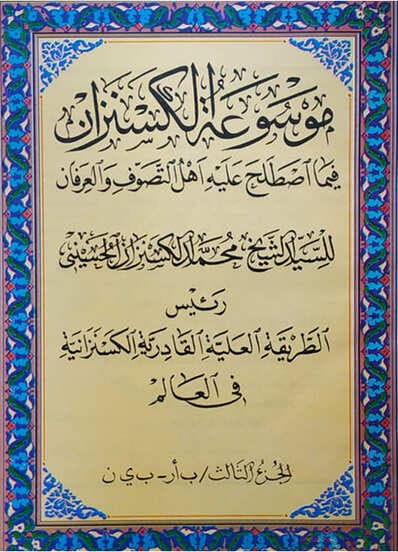 موسوعة الكسنزان
فيما اصطلح عليه اهل التصوف والعرفان
للسيد الشيخ محمد الكسنزان الحسيني
رئيس
الطريقة العلية القادرية الكسنزانية
في العالم
الجزء الثالث / ب أ ر - ب ي ن